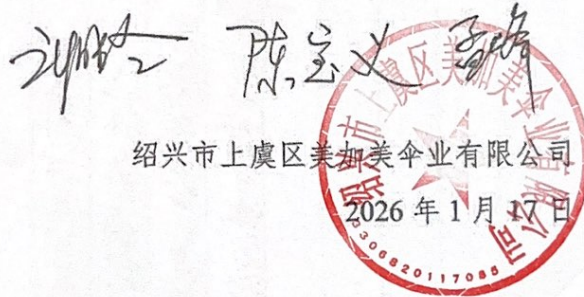 陈宝义
绍兴市上虞区美加美伞业有限公司
2026年1月17日
绍兴市上虞区美加美伞业有限公司
3306820117085